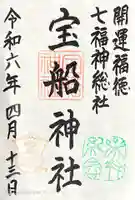 開運福徳
七福神総社
宝船神社
令和六年 四月 十三日